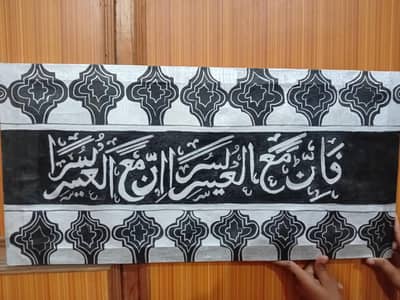 فَإِنَّ مَعَ العُسْرِ يُسْرًا إِنَّ مَعَ العُسْرِ يُسْرًا